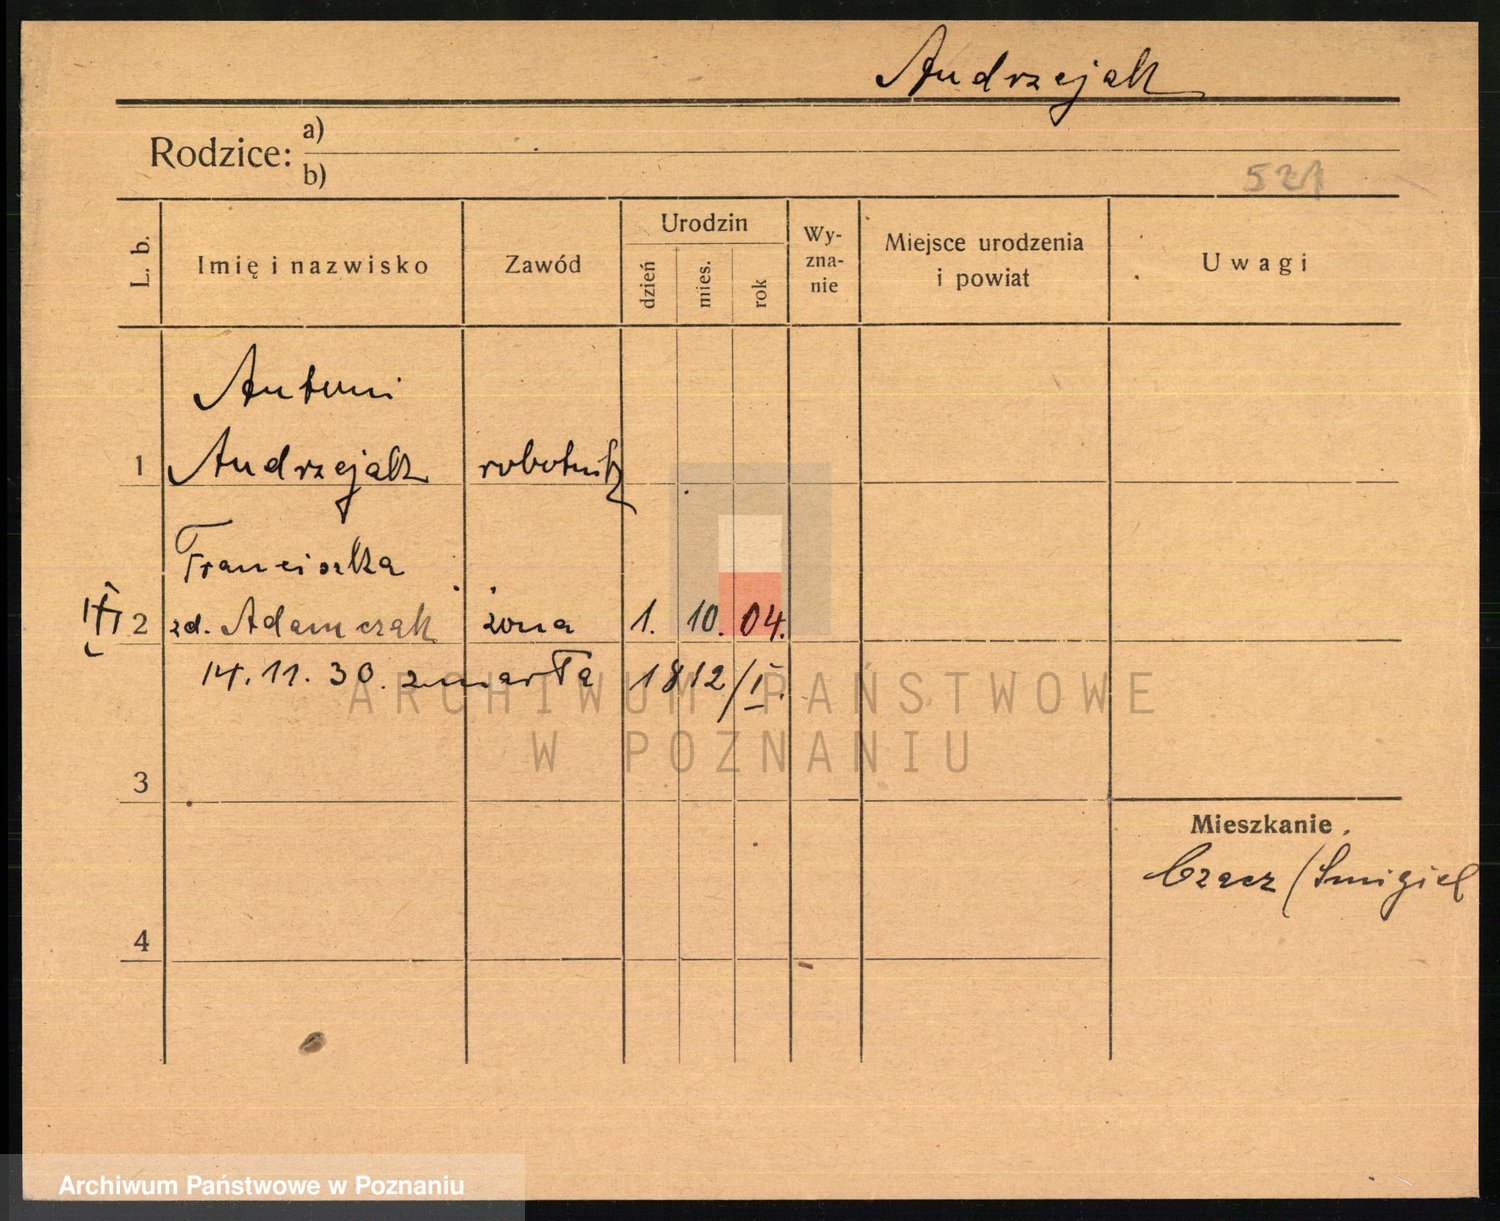 Andrzejak
Rodzice: a)
b)
521
L. b.
Imię i nazwisko
Zawód
Urodzin
dzień
mies.
rok
Wy-
zna-
nie
Miejsce urodzenia
i powiat
Uwagi
Antoni
1 Andrzejak robotnik
Franciszka
2 zd. Adamczak żona 1. 10. 04.
14. 11. 30. zmarła 1812/I.
ARCHIWUM PAŃSTWOWE
W POZNANIU
3
Mieszkanie
Czacz (Śmigiel
4
Archiwum Państwowe w Poznaniu